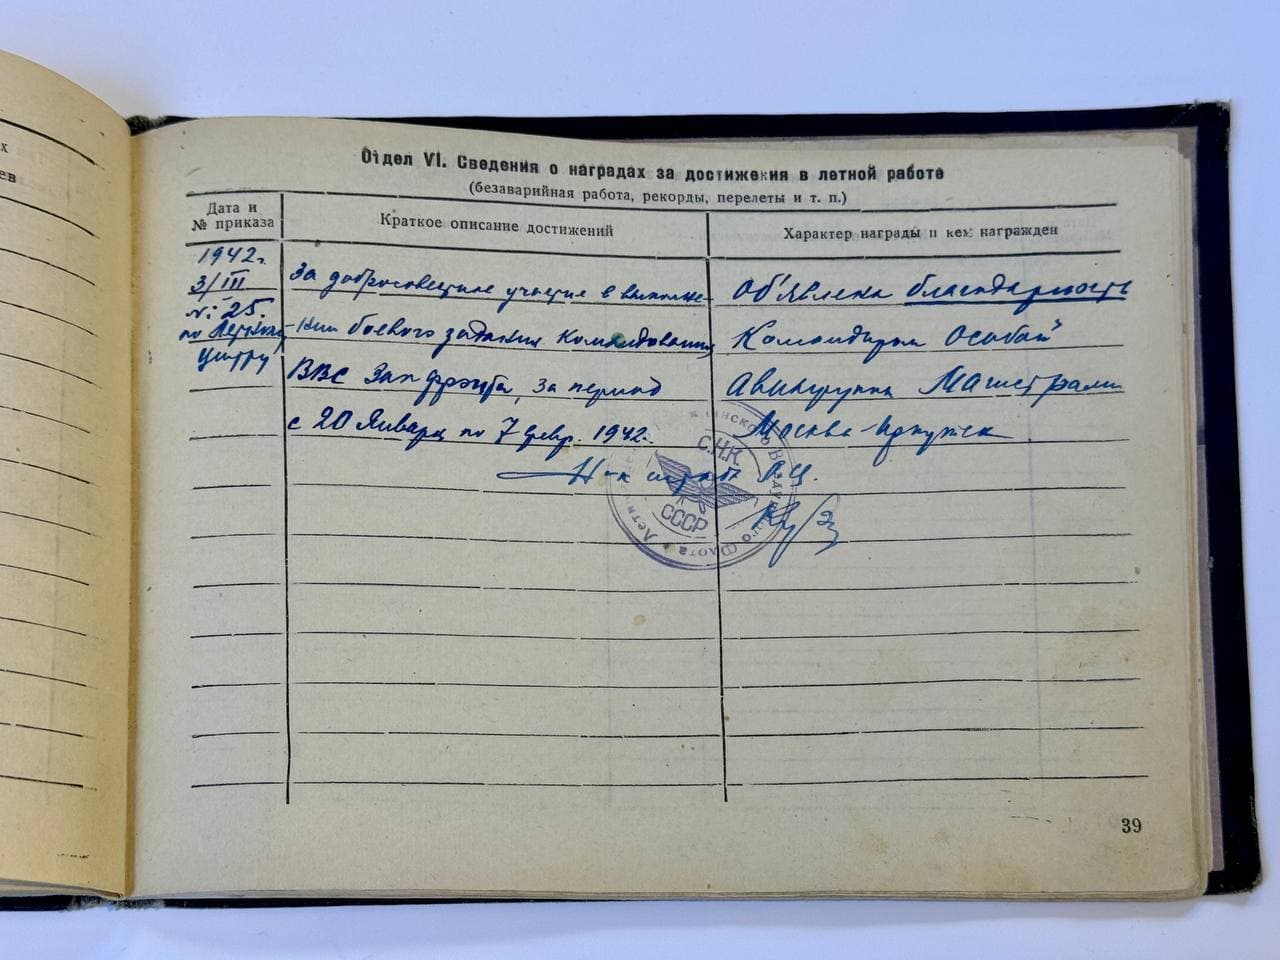 х
ев
Отдел VI. Сведения о наградах за достижения в летной работе
(безаварийная работа, рекорды, перелеты и т. п.)
Дата и
№ приказа
Краткое описание достижений
Характер награды и кем награжден
1942 г.
3/III
№ 25.
по Летному
центру
За добросовестное участие в выполне-
-нии боевого задания Командования
ВВС Зап фронта, за период
с 20 Января по 7 февр. 1942 г.
Об'явлена благодарность
Командиром Особой
Авиагруппы Магистрали
Москва-Иркутск
Н-к штаба
С.Н.К.
СССР
Воздушного Флота
39